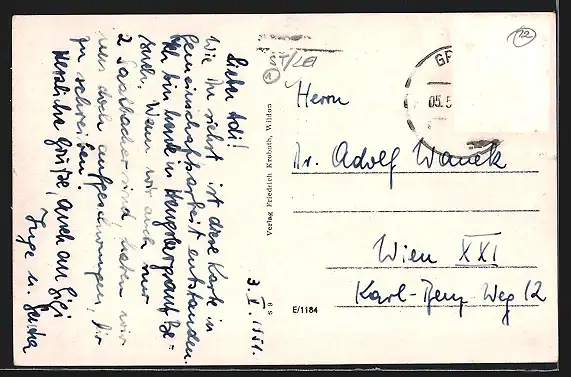 Lieber Adi!
Wie Du siehst ist diese Karte in
Gemeinschaftsarbeit entstanden.
Ich bin heute in Hengsberg auf Be-
such. Wenn wir auch nur
2 Saalbacher sind, haben wir
uns doch aufgeschwungen, Dir
zu schreiben.
Herzliche Grüße, auch an Gigi
Inge u.
3. V. 1951.
ST/LEI
Verlag Friedrich Krobath, Wildon
S 9
E/1184
22
GR
05.5
Herrn
Dr. Adolf Wanek
Wien XXI
Karl-Benz-Weg 12